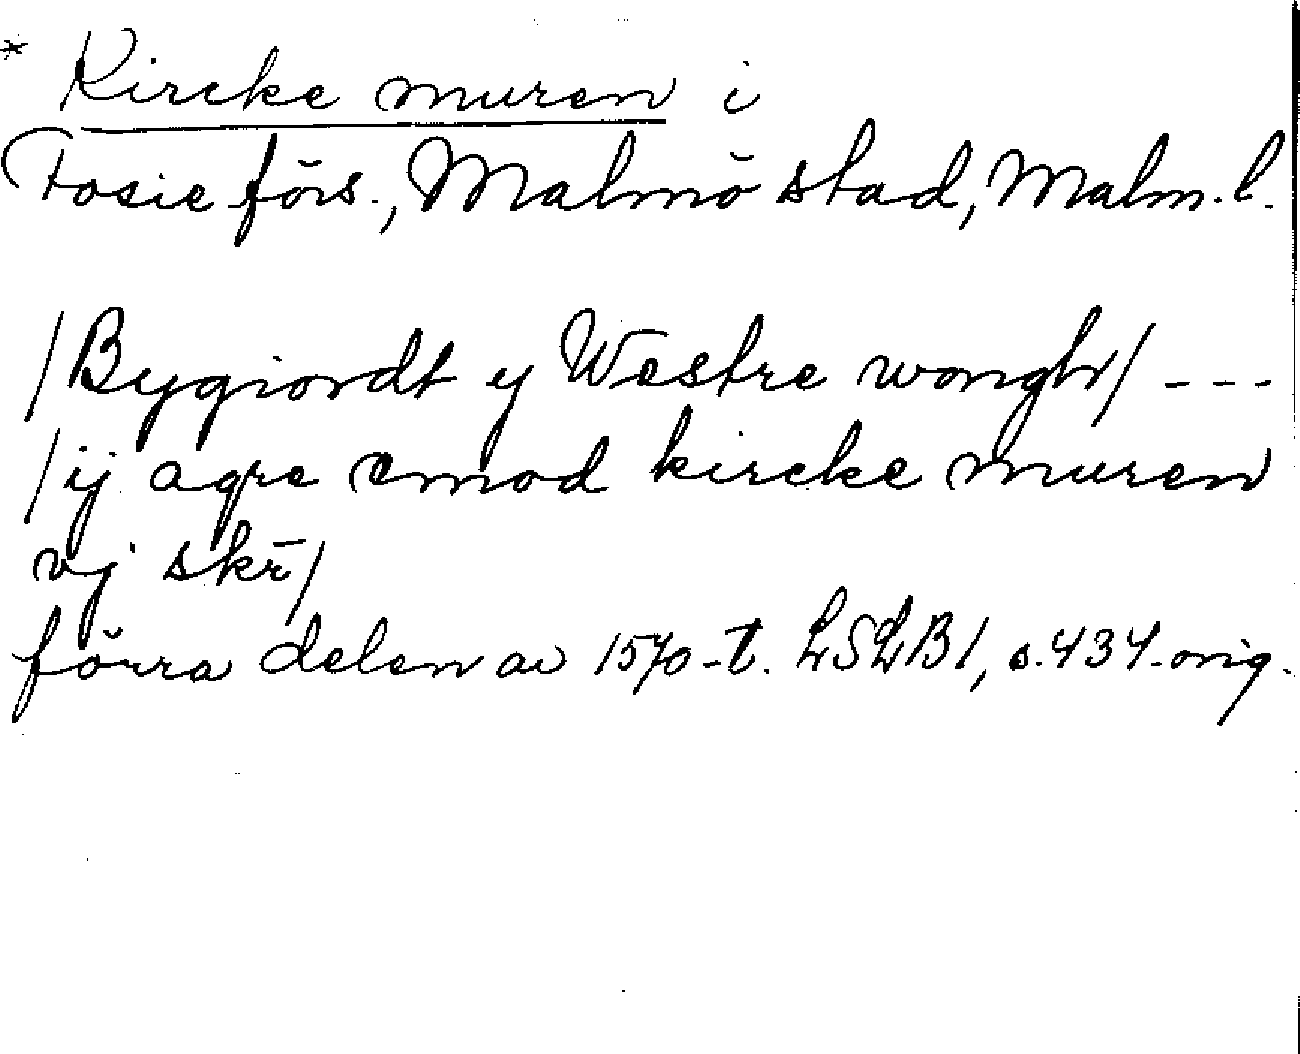 * Kircke muren i
Fosieförs., Malmö stad, Malm. l.
/Bygiordt y Westre wongh/ ---
/ij agre emod kircke muren
vj skr̄/
förra delen av 1570-t. LSLB1, s. 434. orig.